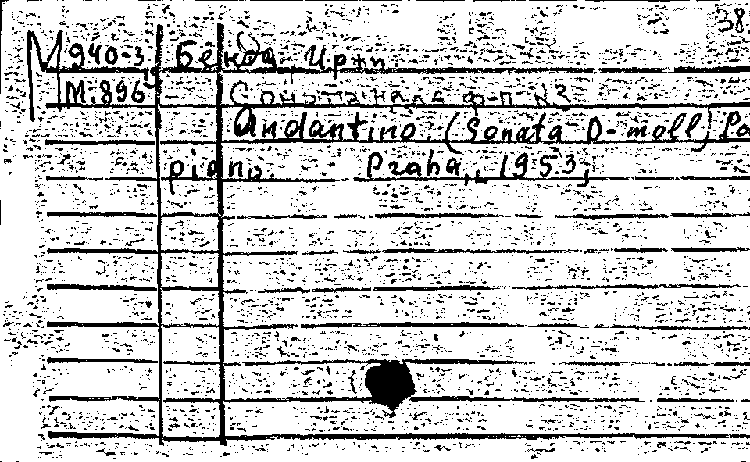 38
М 940-3 Бенда, Иржи.
М:896 Соната для ф-п. №3
Andantino. (Sonata D-moll) Pa
piano. Praha, 1953;